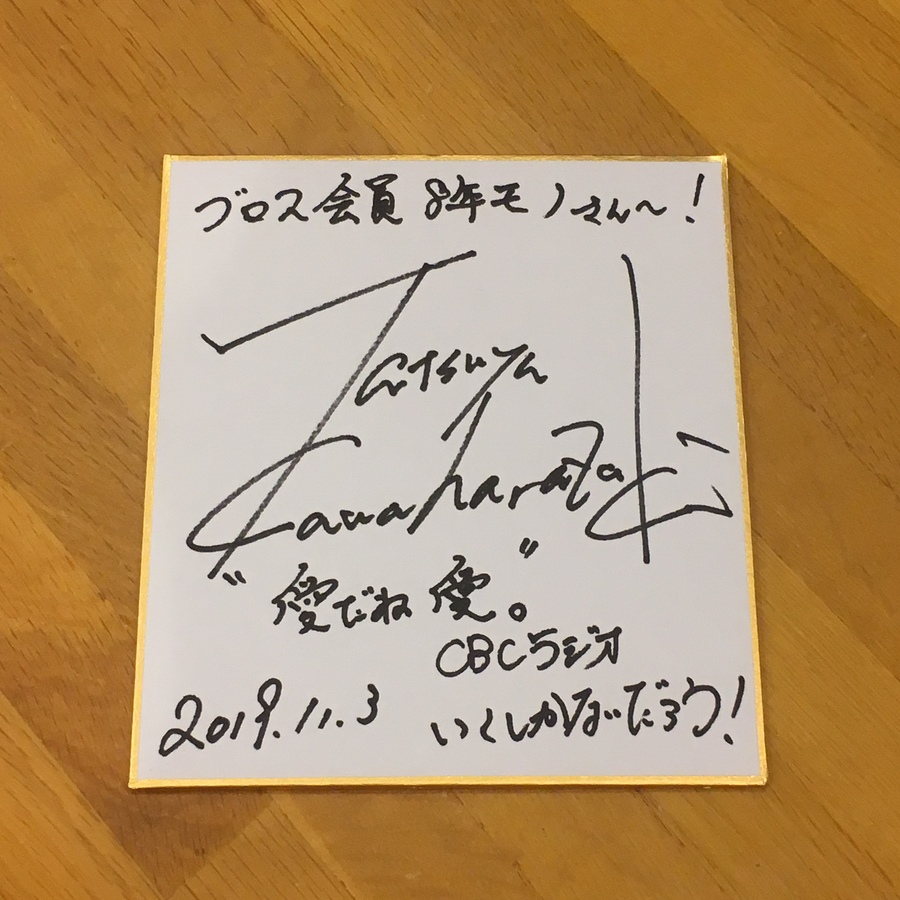 ブロス会員 8年モノさん〜!
Tatsuya
Kawaharazaki
"愛だね 愛。"
CBCラジオ
2019.11.3
いくしかないだろう!